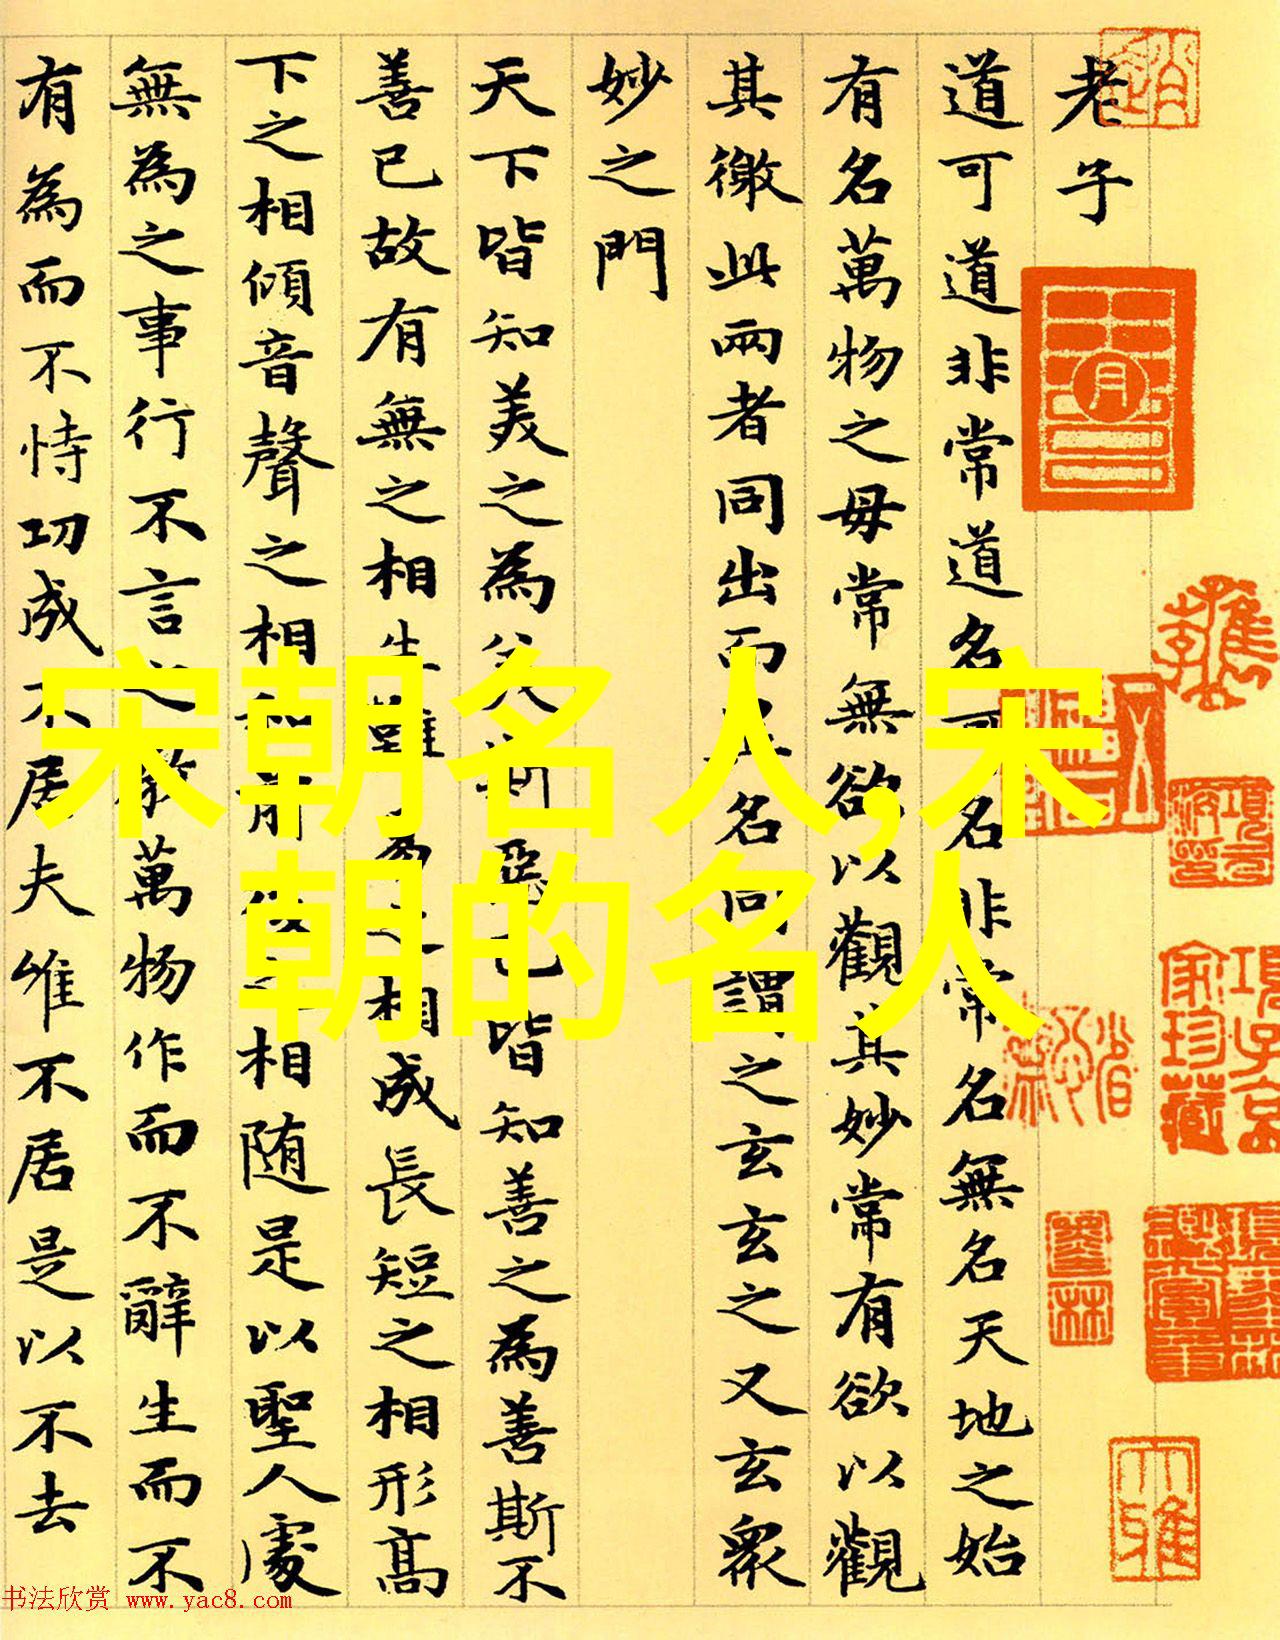 老子
道可道非常道名可名非常名無名天地之始
有名萬物之母常無欲以觀其妙常有欲以觀
其徼此兩者同出而異名同謂之玄玄之又玄衆
妙之門
天下皆知美之為美斯惡已皆知善之為善斯不
善已故有無之相生難易之相成長短之相形髙
下之相傾音聲之相和前後之相随是以聖人處
無為之事行不言之教萬物作而不辭生而不
有為而不恃功成不居夫惟不居是以不去
宋朝名人,宋
朝的名人
項子京
家珍藏
书法欣赏 www.yac8.com